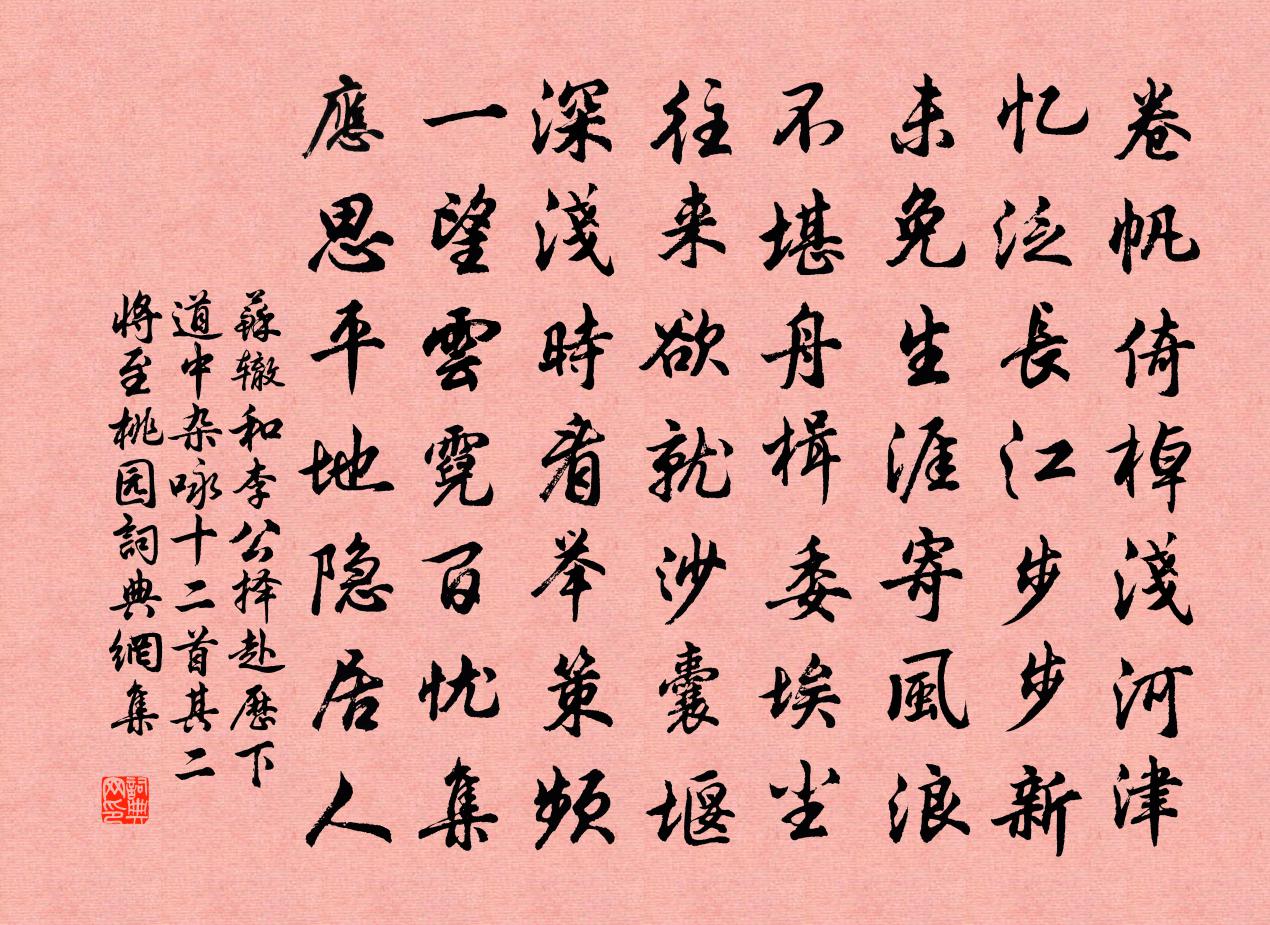 卷帆倚棹淺河津
忆泛長江步步新
未免生涯寄風浪
不堪舟楫委埃尘
往来欲就沙囊堰
深淺時看举策频
一望雲霓百忧集
應思平地隐居人
蘇辙和李公择赴歷下
道中杂咏十二首其二
将至桃园詞典網集
詞典网印